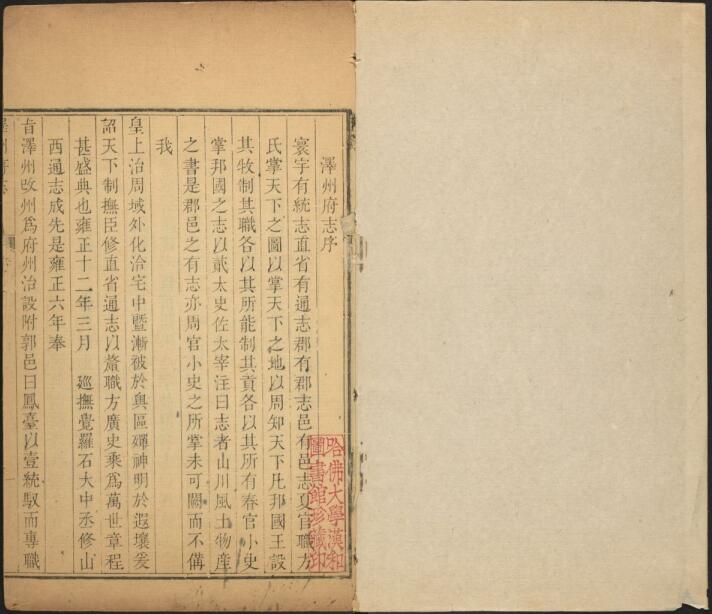 澤州府志序
寰宇有統志直省有通志郡有郡志邑有邑志夏官職方
氏掌天下之圖以掌天下之地以周知天下凡邦國王設
其牧制其職各以其所能制其貢各以其所有春官小史
掌邦國之志以貳太史佐太宰注曰志者山川風土物產
之書是郡邑之有志亦周官小史之所掌未可闕而不備
我
皇上治周域外化洽宅中暨漸被於輿區殫神明於遐壤爰
詔天下制撫臣修直省通志以
職方廣史乘爲萬世章程
甚盛典也雍正十二年三月 廵撫覺羅石大中丞修山
西通志成先是雍正六年奉
旨澤州改州爲府州治設附郭邑曰鳳臺以壹統馭而專職
哈佛大學漢和
圖書館珍藏印